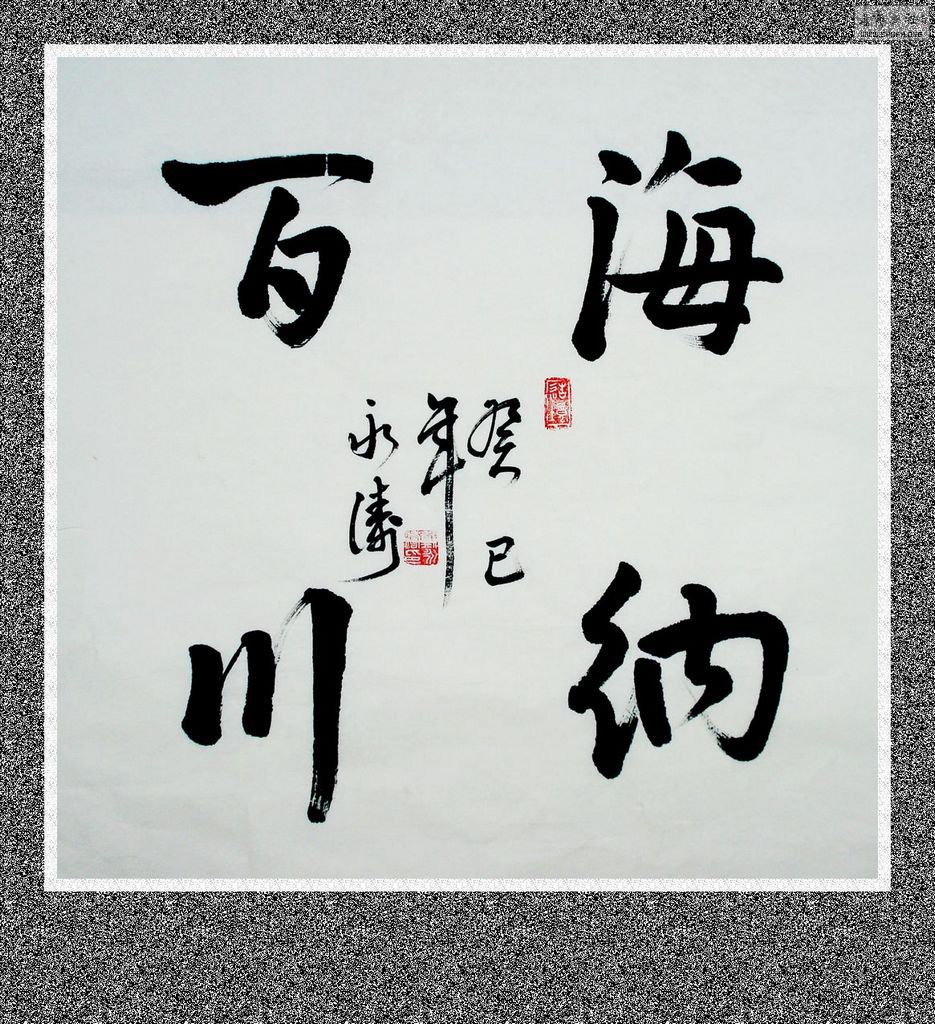 海纳
百川
癸巳
年
永涛